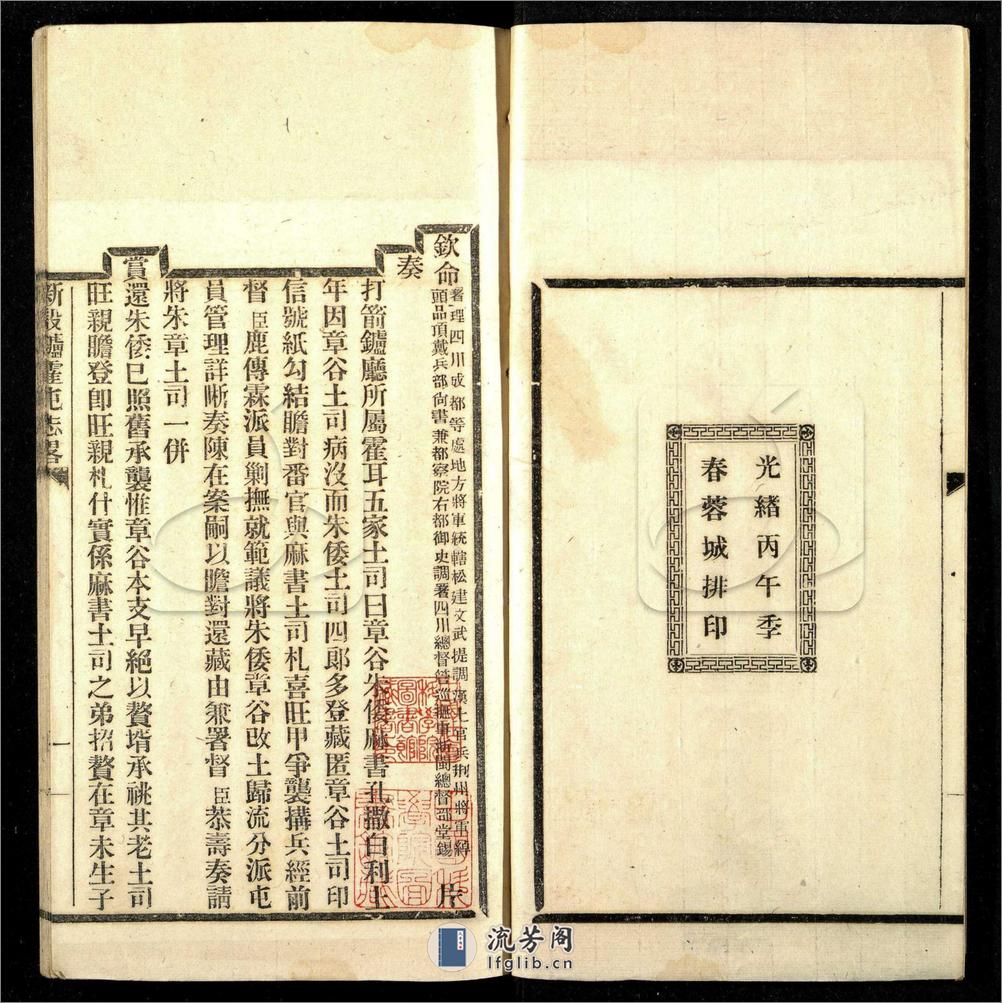 光緒丙午季
春蓉城排印
欽命
署理四川成都等處地方將軍統轄松建文武提調漢土官兵荆州將軍綽
頭品頂戴兵部尚書兼都察院右都御史調署四川總督管巡撫事閩浙總督部堂錫
片
奏
打箭鑪廳所屬霍耳五家土司曰章谷朱倭麻書孔撒白利上
年因章谷土司病沒而朱倭土司四郎多登藏匿章谷土司印
信號紙勾結瞻對番官與麻書土司札喜旺甲爭襲搆兵經前
督臣鹿傳霖派員剿撫就範議將朱倭章谷改土歸流分派屯
員管理詳晰奏陳在案嗣以瞻對還藏由兼署督臣恭壽奏請
將朱章土司一併
賞還朱倭已照舊承襲惟章谷本支早絕以贅壻承祧其老土司
旺親瞻登即旺親札什實係麻書土司之弟招贅在章未生子
新設鑪霍屯志畧
一
流芳阁
lfglib.cn